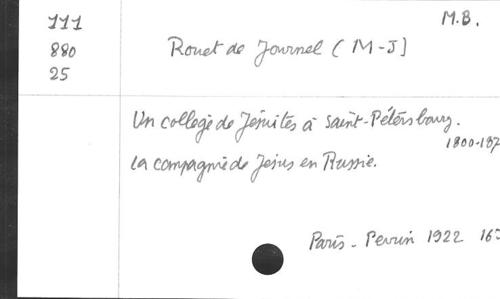 111
880
25
M.B.
Rouet de Journel (M-J)
Un collège de Jésuites à Saint-Pétersbourg.
1800-18
La compagnie de Jésus en Russie.
Paris - Perrin 1922 16